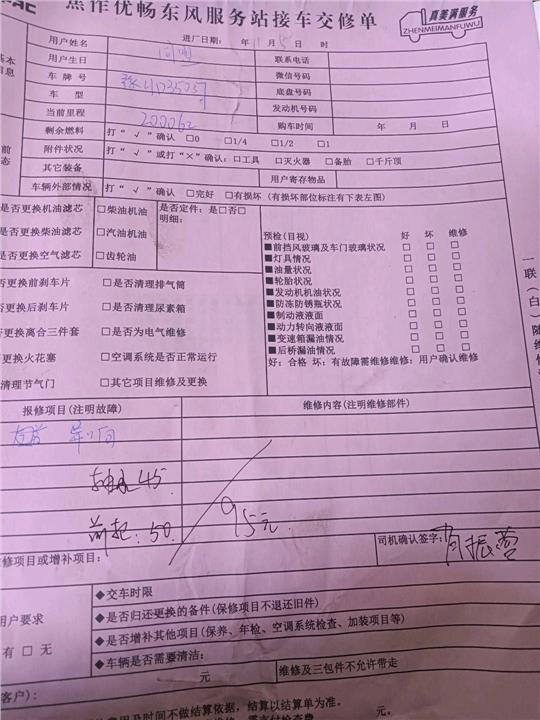 焦作优畅东风服务站接车交修单
真美满服务
ZHENMEIMANFUWU
用户姓名 进厂日期： 年 月 日 时
用户生日 联系电话
车牌号 微信号码
车型 底盘号码
当前里程 200062 发动机号码
剩余燃料 打“√”确认 □0 □1/4 □1/2 □1 购车时间 年 月 日
附件状况 打“√”或打“×”确认：□工具 □灭火器 □备胎 □千斤顶
其它装备 用户寄存物品
车辆外部情况 打“√”确认 □完好 □有损坏（有损坏部位标注有下表左图）
是否更换机油滤芯 □柴油机油 是否定件：是□否□
明细：
是否更换柴油滤芯 □汽油机油
是否更换空气滤芯 □齿轮油
预检(目视) 好 坏 维修
■前挡风玻璃及车门玻璃状况 □ □ □
■灯具情况 □ □ □
■油量状况 □ □ □
■轮胎状况 □ □ □
■发动机机油状况 □ □ □
■防冻防锈瓶状况 □ □ □
■制动液液面 □ □ □
■动力转向液液面 □ □ □
■变速箱漏油情况 □ □ □
■后桥漏油情况 □ □ □
好：合格 坏：有故障需维修维修：用户确认维修
否更换前刹车片 □是否清理排气筒
否更换后刹车片 □是否清理尿素箱
更换离合三件套 □是否为电气维修
更换火花塞 □空调系统是否正常运行
清理节气门 □其它项目维修及更换
报修项目(注明故障) 维修内容(注明维修部件)
45
50. 95元.
修项目或增补项目： 司机确认签字：
用户要求
有 □ 无
◆交车时限
◆是否归还更换的备件(保修项目不退还旧件)
◆是否增补其他项目(保养、年检、空调系统检查、加装项目等)
◆车辆是否需要清洁：
元 维修及三包件不允许带走
客户)：
用及时间不做结算依据，结算以结算单为准。
一联（白）随